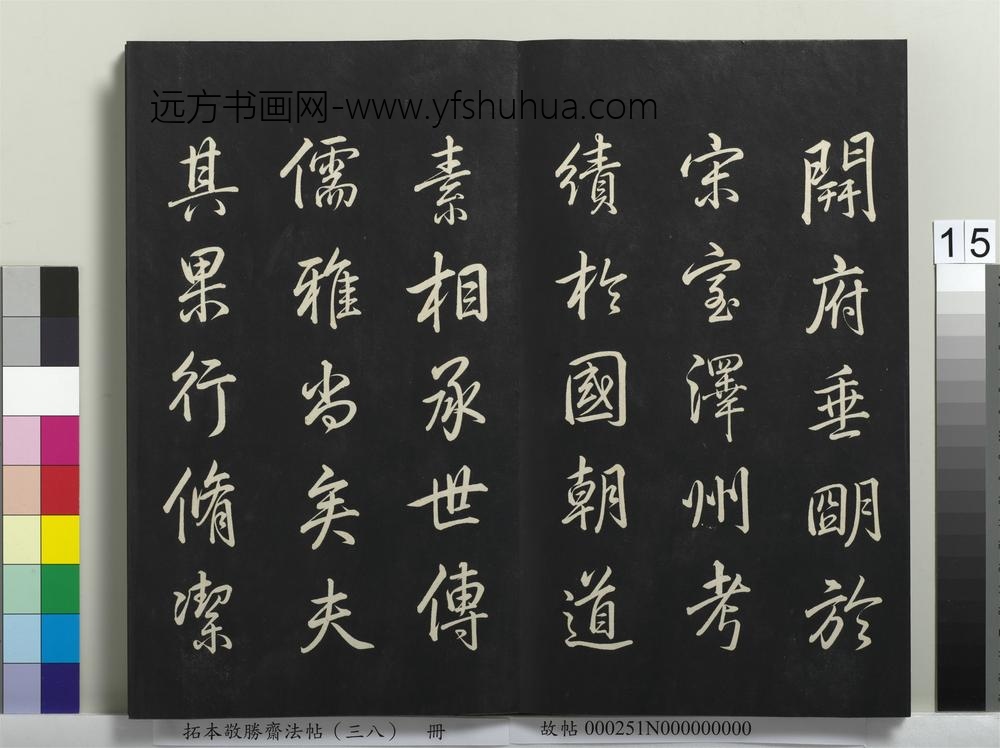 远方书画网-www.yfshuhua.com
開府垂朙於
宋室澤州考
績於國朝道
素相承世傳
儒雅尚矣夫
其果行脩潔
15
拓本敬勝齋法帖（三八） 冊
故帖 000251N000000000